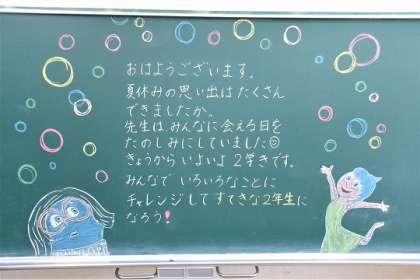 おはようございます。
夏休みの思い出は たくさん
できましたか。
先生は みんなに会える日を
たのしみにしていました☺
きょうから いよいよ 2学きです。
みんなで いろいろなことに
チャレンジして すてきな2年生に
なろう!